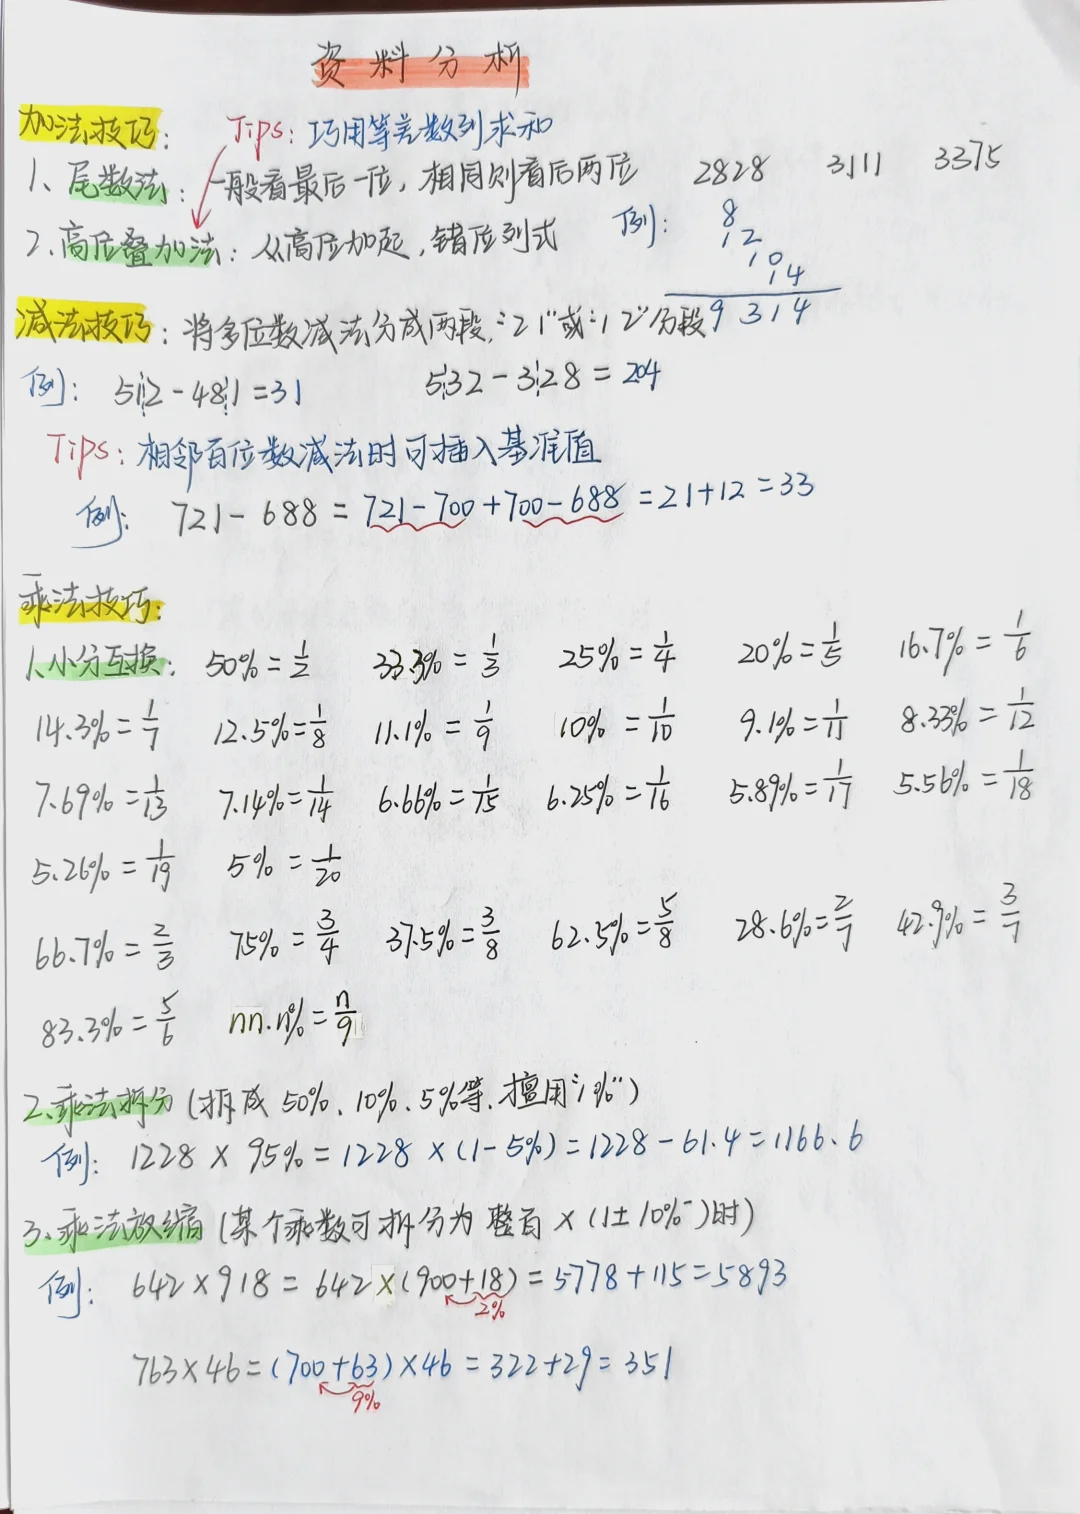 资料分析
加法技巧: Tips: 巧用等差数列求和
1、尾数法: 一般看最后一位,相同则看后两位 2828 3111 3375
2、高位叠加法: 从高位加起,错位列式 例: 8
12
10
14
9314
减法技巧: 将多位数减法分成两段,"21"或"12"分段
例: 512-481=31 532-328=204
Tips: 相邻百位数减法时可插入基准值
例: 721-688=721-700+700-688=21+12=33
乘法技巧:
1、小分互换: 50%=1/2 33.3%=1/3 25%=1/4 20%=1/5 16.7%=1/6
14.3%=1/7 12.5%=1/8 11.1%=1/9 10%=1/10 9.1%=1/11 8.33%=1/12
7.69%=1/13 7.14%=1/14 6.66%=1/15 6.25%=1/16 5.89%=1/17 5.56%=1/18
5.26%=1/19 5%=1/20
66.7%=2/3 75%=3/4 37.5%=3/8 62.5%=5/8 28.6%=2/7 42.9%=3/7
83.3%=5/6 nn.n%=n/9
2、乘法拆分(拆成50%、10%、5%等,擅用"1%")
例: 1228×95%=1228×(1-5%)=1228-61.4=1166.6
3、乘法放缩(某个乘数可拆分为整百×(1±10%⁻)时)
例: 642×918=642×(900+18)=5778+115=5893
2%
763×46=(700+63)×46=322+29=351
9%